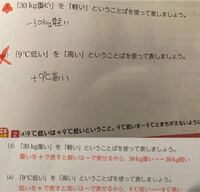 「30kg重い」を「軽い」ということばを使って表しましょう。
-30kg軽い
「9℃低い」を「高い」ということばを使って表しましょう。
+9℃高い
2 (4) 9℃低いは+9℃低いということ。9℃低いを-9℃とまちがえないように
(3) 「30kg重い」を「軽い」ということばを使って表しましょう。
重いを+で表すと軽いは-で表せるから、30kg重い→-30kg軽い
(4) 「9℃低い」を「高い」ということばを使って表しましょう。
低いを+で表すと高いは-で表せるから、9℃低い→-9℃高い